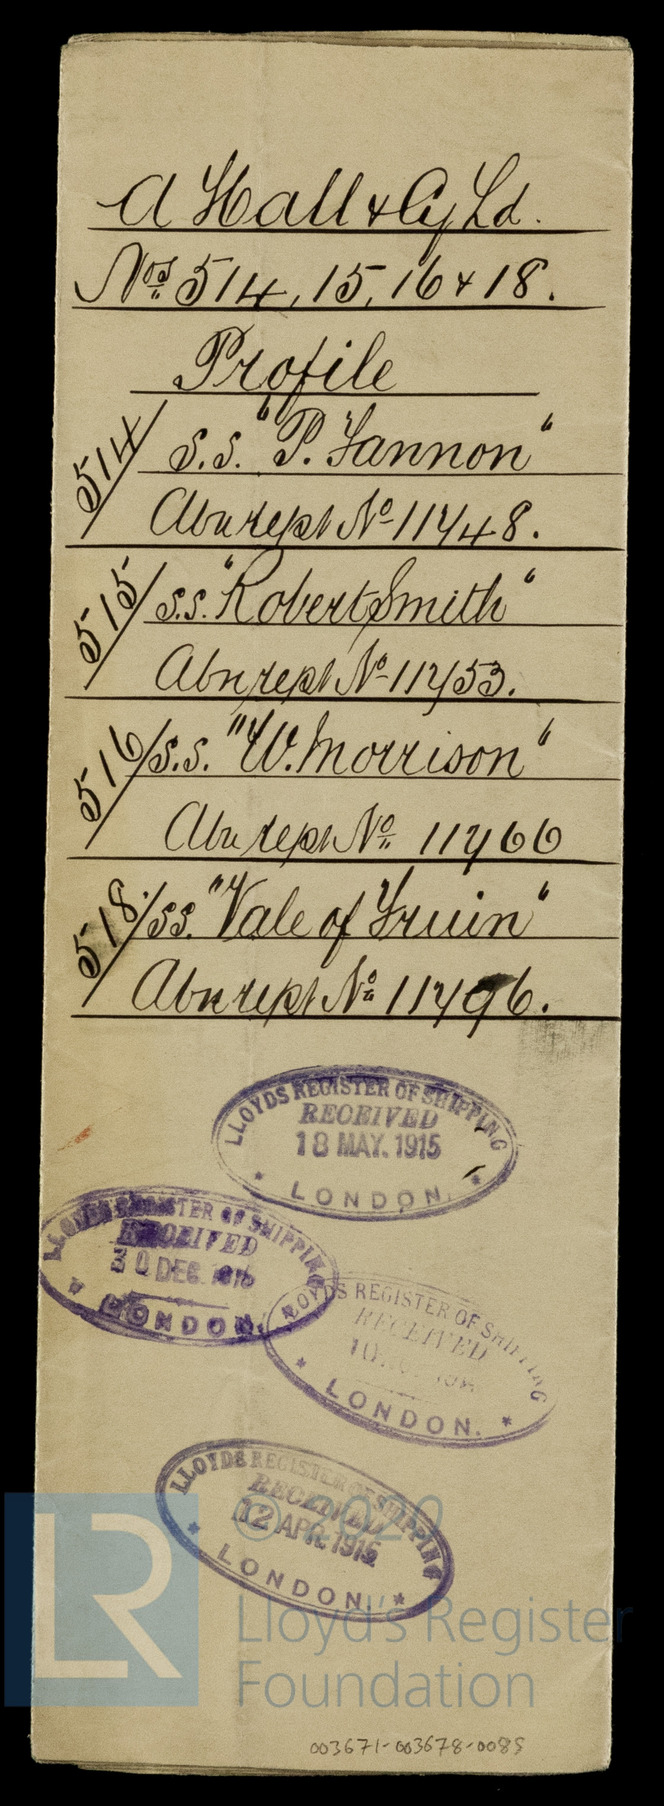 A Hall & Cy Ld.
Nos 514, 15, 16 & 18.
Profile
514/ s.s. "P. Fannon"
Abn rept No 11748.
515/ s.s. "Robert Smith"
Abn rept No 11753.
516/ s.s. "W. Morrison"
Abn rept No 11766
518/ ss. "Vale of Fruin"
Abn rept No 11796.
LLOYDS REGISTER OF SHIPPING
RECEIVED
18 MAY. 1915
LONDON.
LLOYDS REGISTER OF SHIPPING
RECEIVED
30 DEC. 1915
LONDON.
LLOYDS REGISTER OF SHIPPING
RECEIVED
LONDON.
LLOYDS REGISTER OF SHIPPING
RECEIVED
12 APR. 1915
LONDON.
LR
© 2020
Lloyd's Register
Foundation
003671-003678-0085